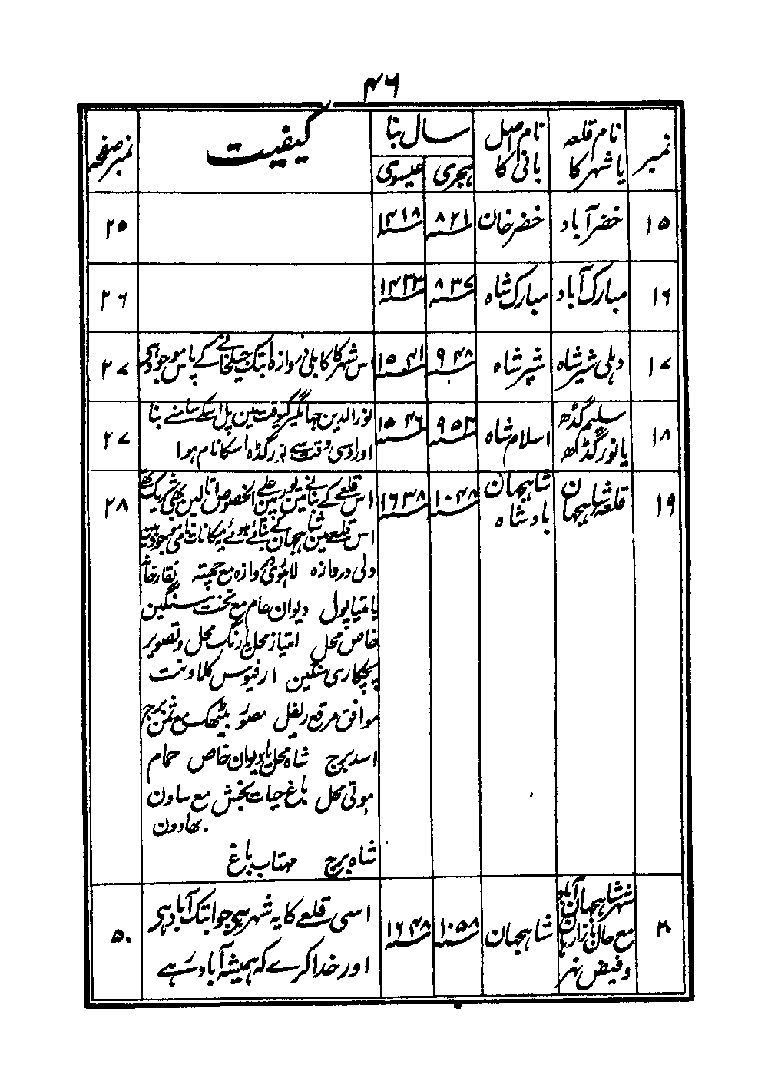 ۴۶
نمبر | نام قلعہ یا شہر کا | نام اصل بانی کا | سال بنا ہجری | عیسوی | کیفیت | نمبر صفحہ
۱۵ | خضر آباد | خضر خان | ۸۲۱ | ۱۴۱۸ | | ۲۵
۱۶ | مبارک آباد | مبارک شاہ | ۸۳۷ | ۱۴۳۳ | | ۲۶
۱۷ | دہلی شیر شاہ | شیر شاہ | ۹۴۸ | ۱۵۴۱ | اس شہر کا کابلی دروازہ ابتک جیلخانے کے پاس موجود ہے | ۲۷
۱۸ | سلیم گڈھ
یا نور گڈھ | اسلام شاہ | ۹۵۳ | ۱۵۴۶ | نور الدین جہانگیر کے وقت مین پل اسکے سامنے بنا
اور اوسی وقت سے نور گڈہ اسکا نام ہوا | ۲۷
۱۹ | قلعہ شاہجہان | شاہجہان
بادشاہ | ۱۰۴۸ | ۱۶۳۸ | اس قلعے کے بنانے مین
اس قلعہ مین شاہجہان کے بنائے ہوئے یہ مکانات نامی موجود ہین | ۲۸
دلی دروازہ لاہوری دروازہ مع چھتہ نقار خانہ
ہتیا پول دیوان عام مع تخت سنگین
خاص محل امتیاز محل یا رنگ محل و تصویر
پچکاری سنگین ارفیوس کلاونت
موافق مرقع ریفل مصور بیٹھک مع مثمن برج
اسد برج شاہ محل یا دیوان خاص حمام
موتی محل باغ حیات بخش مع ساون
بھادون
شاہ برج مہتاب باغ
۲۰ | شہر شاہجہان آباد
مع
و فیض نہر | شاہجہان | ۱۰۵۸ | ۱۶۴۸ | اسی قلعے کا یہ شہر ہے جو ابتک آباد ہے
اور خدا کرے کہ ہمیشہ آباد رہے | ۵۰